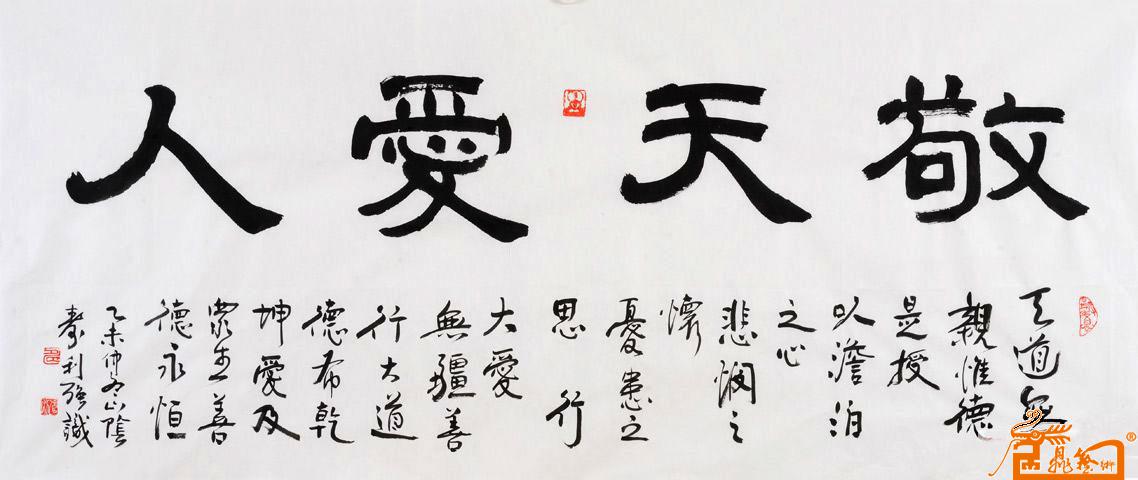 敬天愛人
天道無
親惟德
是授
以澹泊
之心
悲憫之
懷
憂患之
思 行
大愛
無疆善
行大道
德布乾
坤愛及
眾生善
德永恒
乙未仲冬山陰
壽利強識